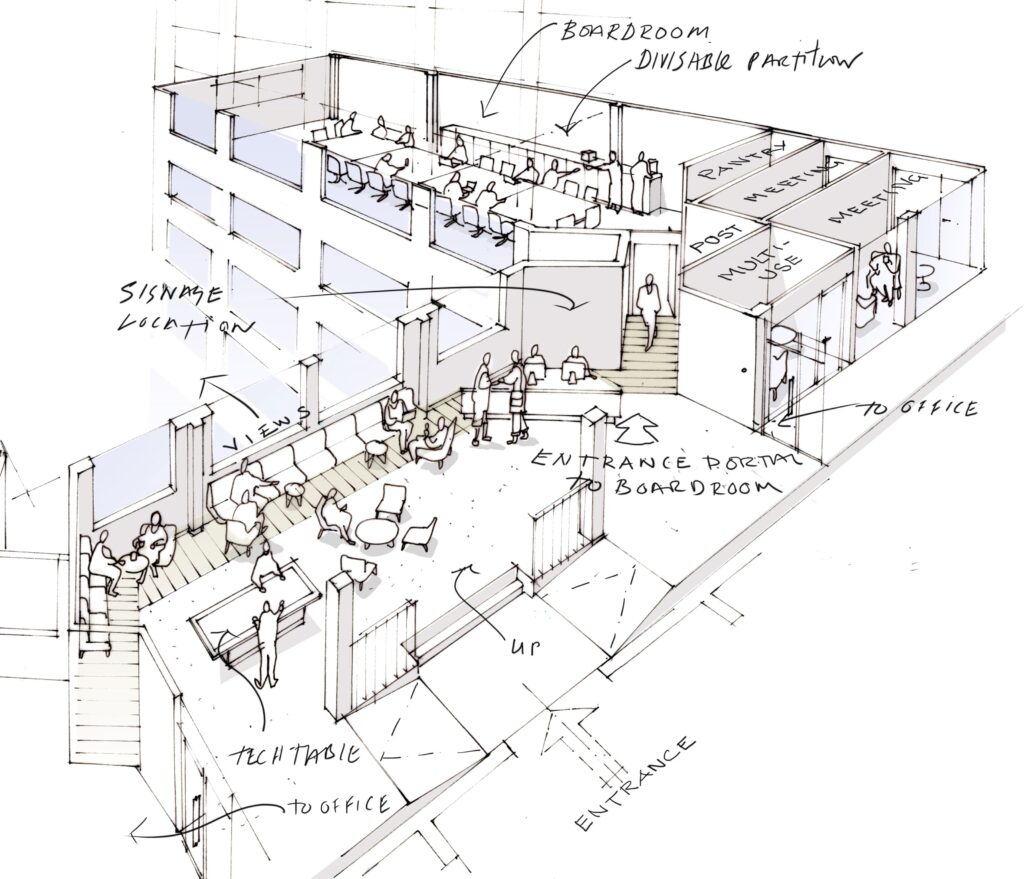 BOARDROOM
DIVISABLE PARTITION
PAINTRY
MEETING
MEETING
POST
MULTI-
USE
SIGNAGE
LOCATION
VIEWS
TO OFFICE
ENTRANCE PORTAL
TO BOARDROOM
UP
TECH TABLE
ENTRANCE
TO OFFICE